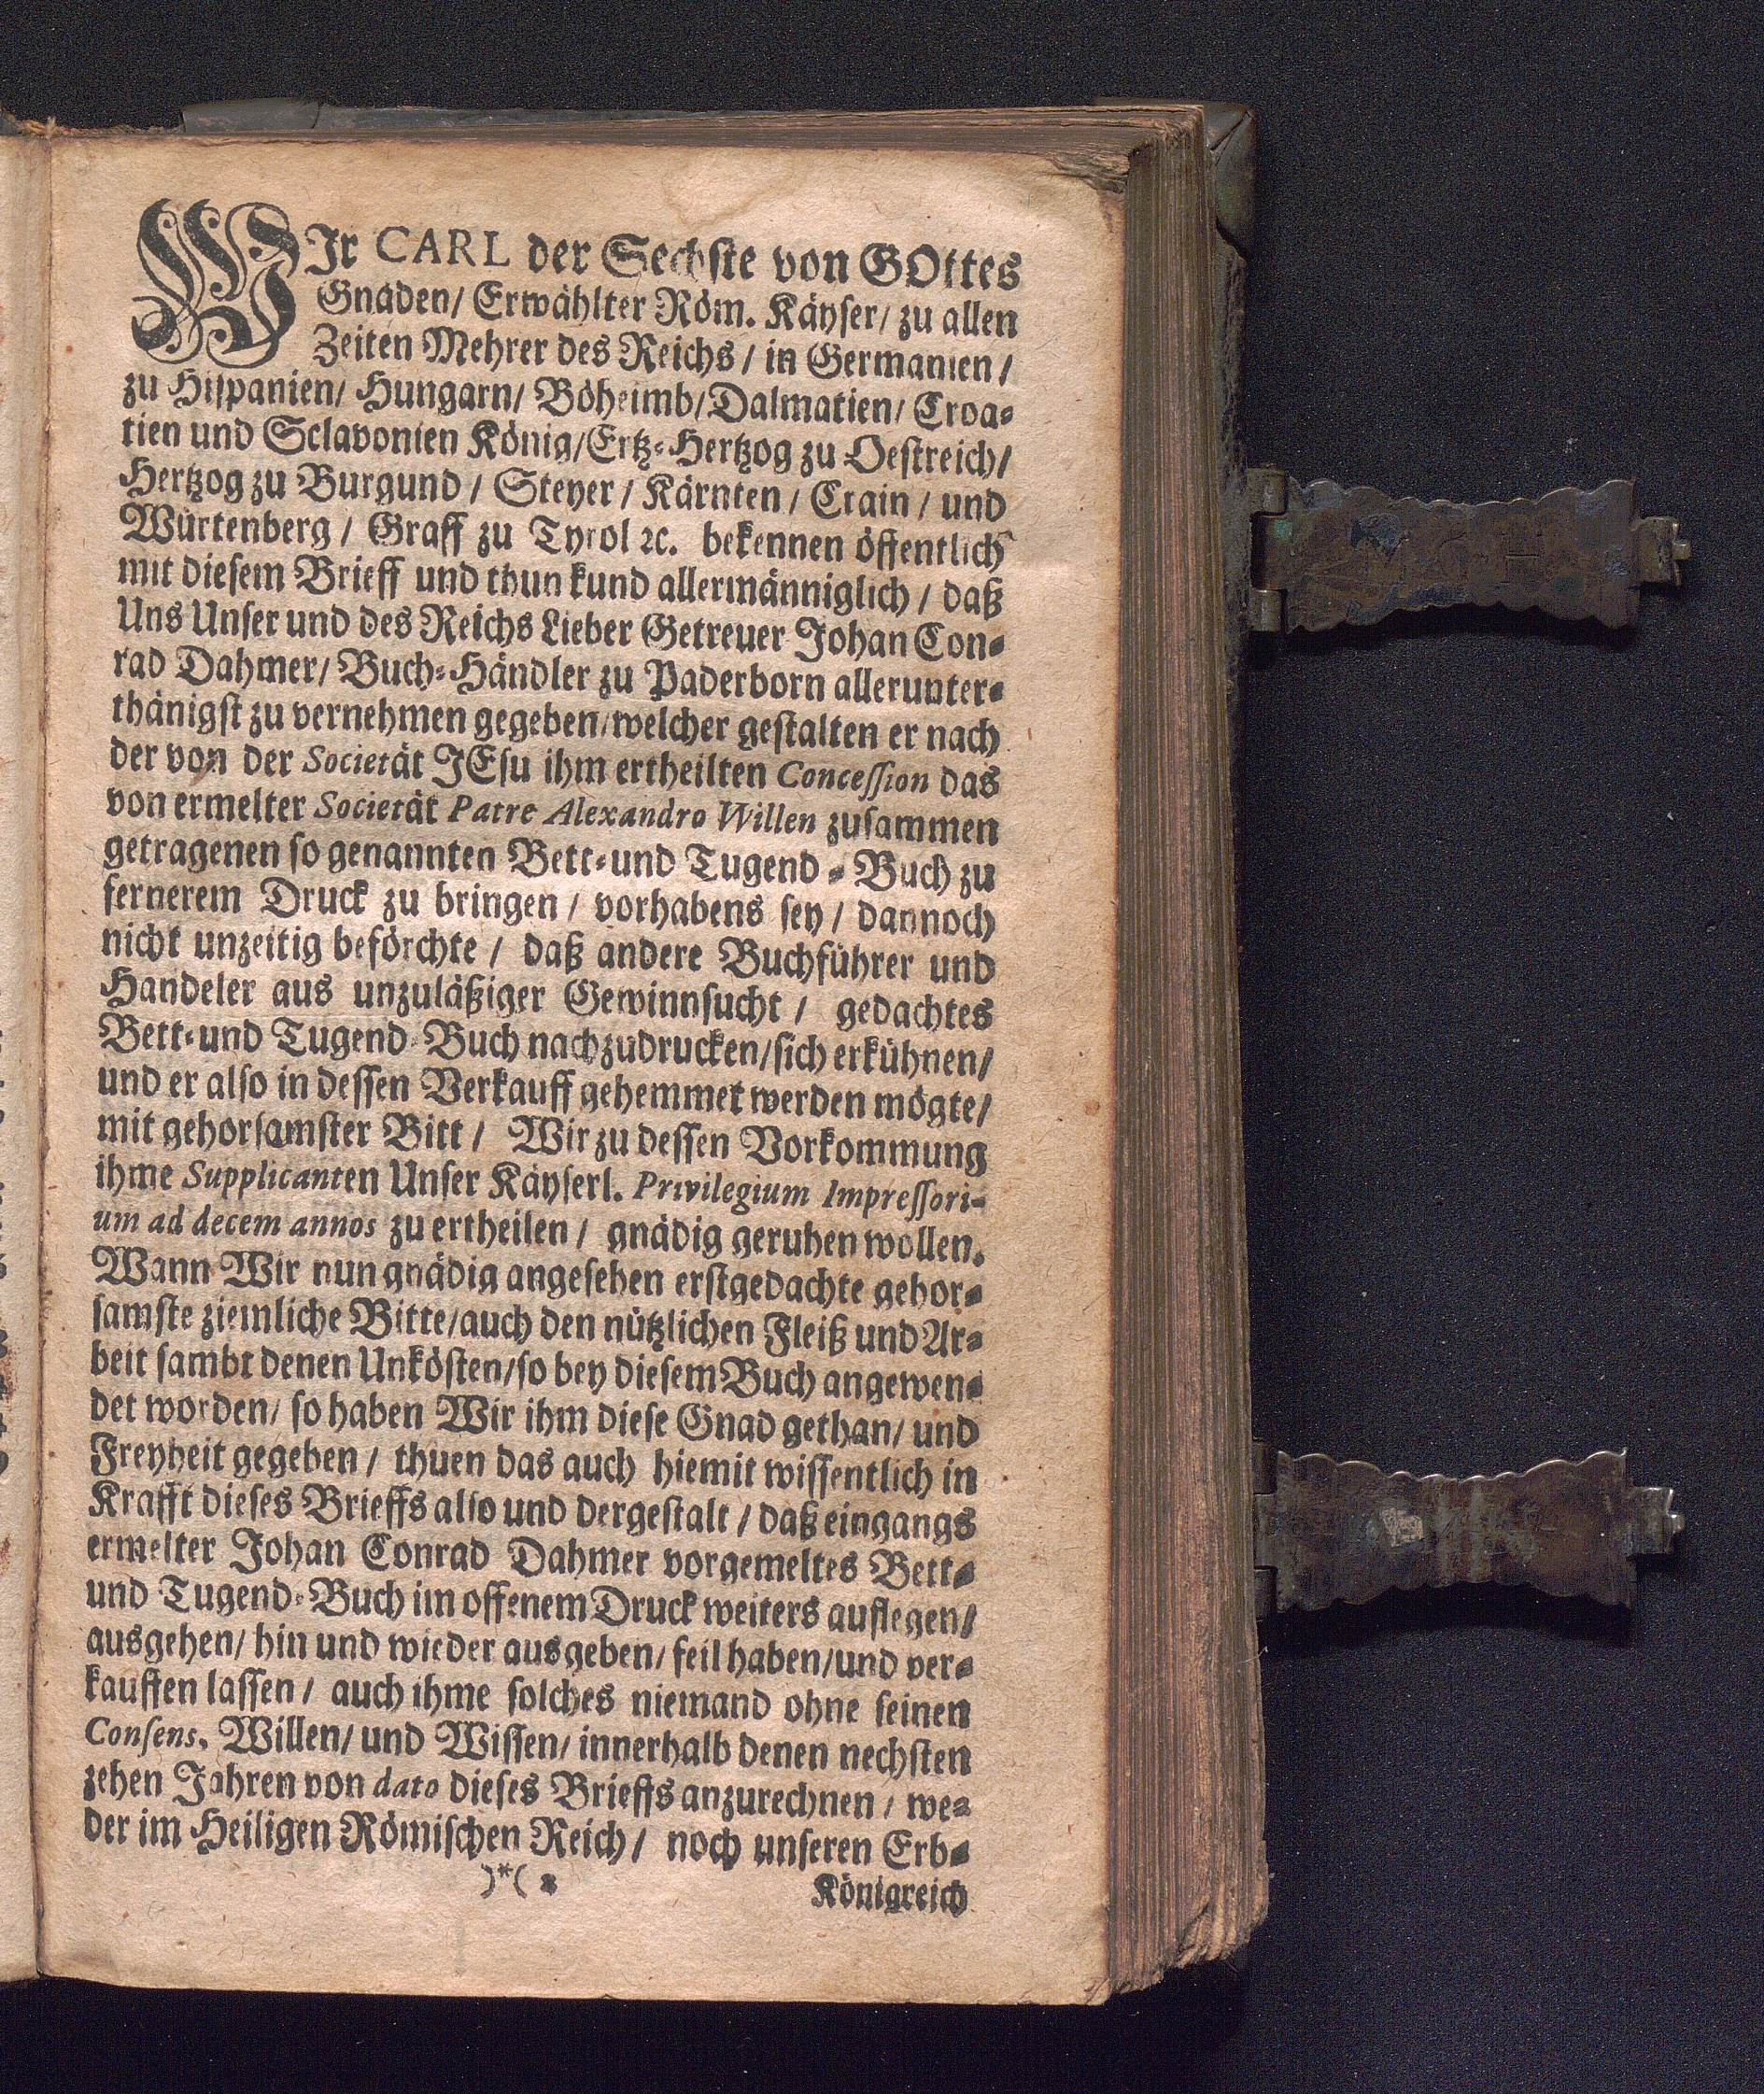 WIr CARL der Sechste von GOttes
Gnaden/ Erwählter Röm. Käyser/ zu allen
Zeiten Mehrer des Reichs / in Germanien /
zu Hispanien/ Hungarn/ Böheimb/ Dalmatien/ Croa-
tien und Sclavonien König/ Ertz-Hertzog zu Oestreich/
Hertzog zu Burgund / Steyer / Kärnten / Crain / und
Würtenberg / Graff zu Tyrol ꝛc. bekennen öffentlich
mit diesem Brieff und thun kund allermänniglich / daß
Uns Unser und des Reichs Lieber Getreuer Johan Con-
rad Dahmer/ Buch-Händler zu Paderborn allerunter-
thänigst zu vernehmen gegeben/ welcher gestalten er nach
der von der Societät JEsu ihm ertheilten Concession das
von ermelter Societät Patre Alexandro Willen zusammen
getragenen so genannten Bett-und Tugend-Buch zu
fernerem Druck zu bringen / vorhabens sey / dannoch
nicht unzeitig beförchte / daß andere Buchführer und
Handeler aus unzuläßiger Gewinnsucht / gedachtes
Bett-und Tugend-Buch nachzudrucken/ sich erkühnen/
und er also in dessen Verkauff gehemmet werden mögte/
mit gehorsamster Bitt / Wir zu dessen Vorkommung
ihme Supplicanten Unser Käyserl. Privilegium Impressori-
um ad decem annos zu ertheilen / gnädig geruhen wollen.
Wann Wir nun gnädig angesehen erstgedachte gehor-
samste ziemliche Bitte/ auch den nützlichen Fleiß und Ar-
beit sambt denen Unkösten/ so bey diesem Buch angewen-
det worden/ so haben Wir ihm diese Gnad gethan/ und
Freyheit gegeben / thuen das auch hiemit wissentlich in
Krafft dieses Brieffs also und dergestalt / daß eingangs
ermelter Johan Conrad Dahmer vorgemeltes Bett-
und Tugend-Buch im offenem Druck weiters auflegen/
ausgehen/ hin und wieder ausgeben/ feil haben/ und ver-
kauffen lassen / auch ihme solches niemand ohne seinen
Consens, Willen/ und Wissen/ innerhalb denen nechsten
zehen Jahren von dato dieses Brieffs anzurechnen / we-
der im Heiligen Römischen Reich / noch unseren Erb-
)*( 2 Königreich